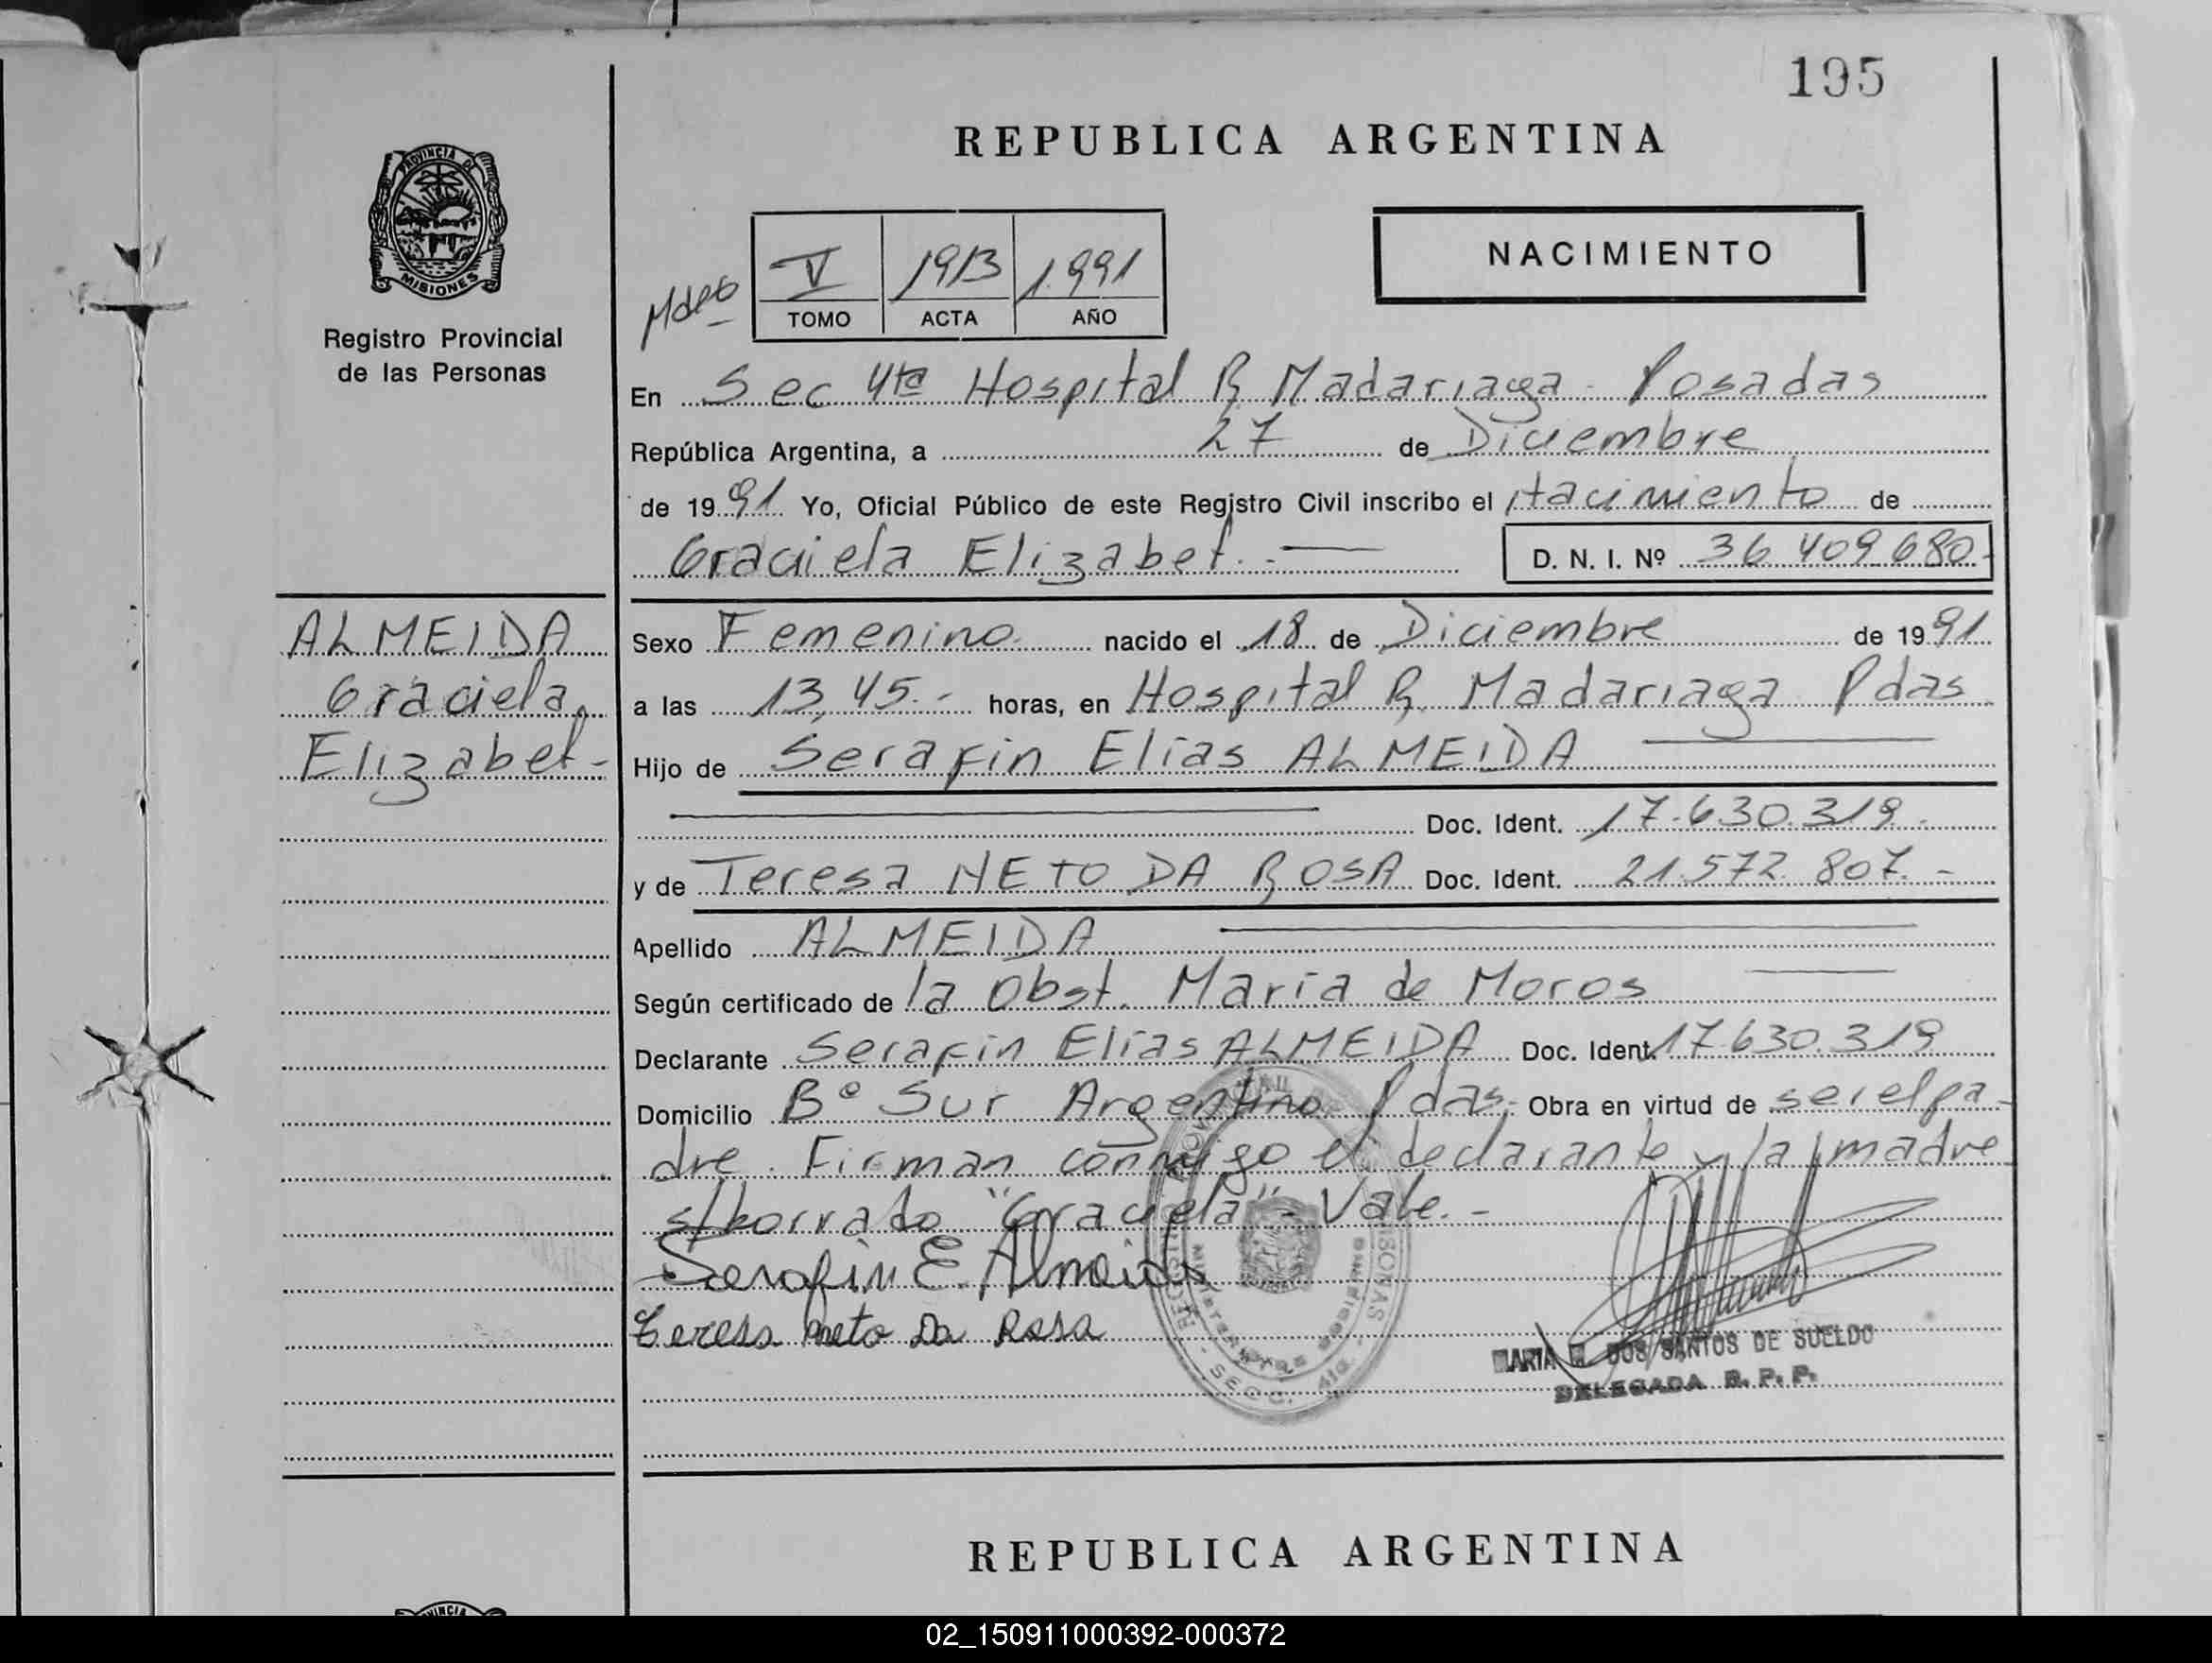 195
REPUBLICA ARGENTINA
PROVINCIA DE
MISIONES
Registro Provincial
de las Personas
NACIMIENTO
V 1913 1.991
TOMO ACTA AÑO
En Sec 4ta Hospital R. Madariaga - Posadas
República Argentina, a 27 de Diciembre
de 1991 Yo, Oficial Público de este Registro Civil inscribo el Nacimiento de
Graciela Elizabet.-
D. N. I. Nº 36.409.680.-
ALMEIDA
Graciela
Elizabet-
Sexo Femenino. nacido el 18 de Diciembre de 1991
a las 13,45.- horas, en Hospital R. Madariaga Pdas
Hijo de Serafin Elias ALMEIDA
Doc. Ident. 17.630.319.-
y de Teresa NETO DA ROSA Doc. Ident. 21.572.807.-
Apellido ALMEIDA
Según certificado de la Obst. Maria de Moros
Declarante Serafin Elias ALMEIDA Doc. Ident. 17.630.319
Domicilio Bº Sur Argentino Pdas. Obra en virtud de ser el pa-
dre. Firman conmigo el declarante y la madre
s/borrado "Graciela" - Vale.-
Serafin E. Almeida
Teresa Neto Da Rosa
MARIA DOS SANTOS DE SUELDO
DELEGADA R. P. P.
REPUBLICA ARGENTINA
02_150911000392-000372